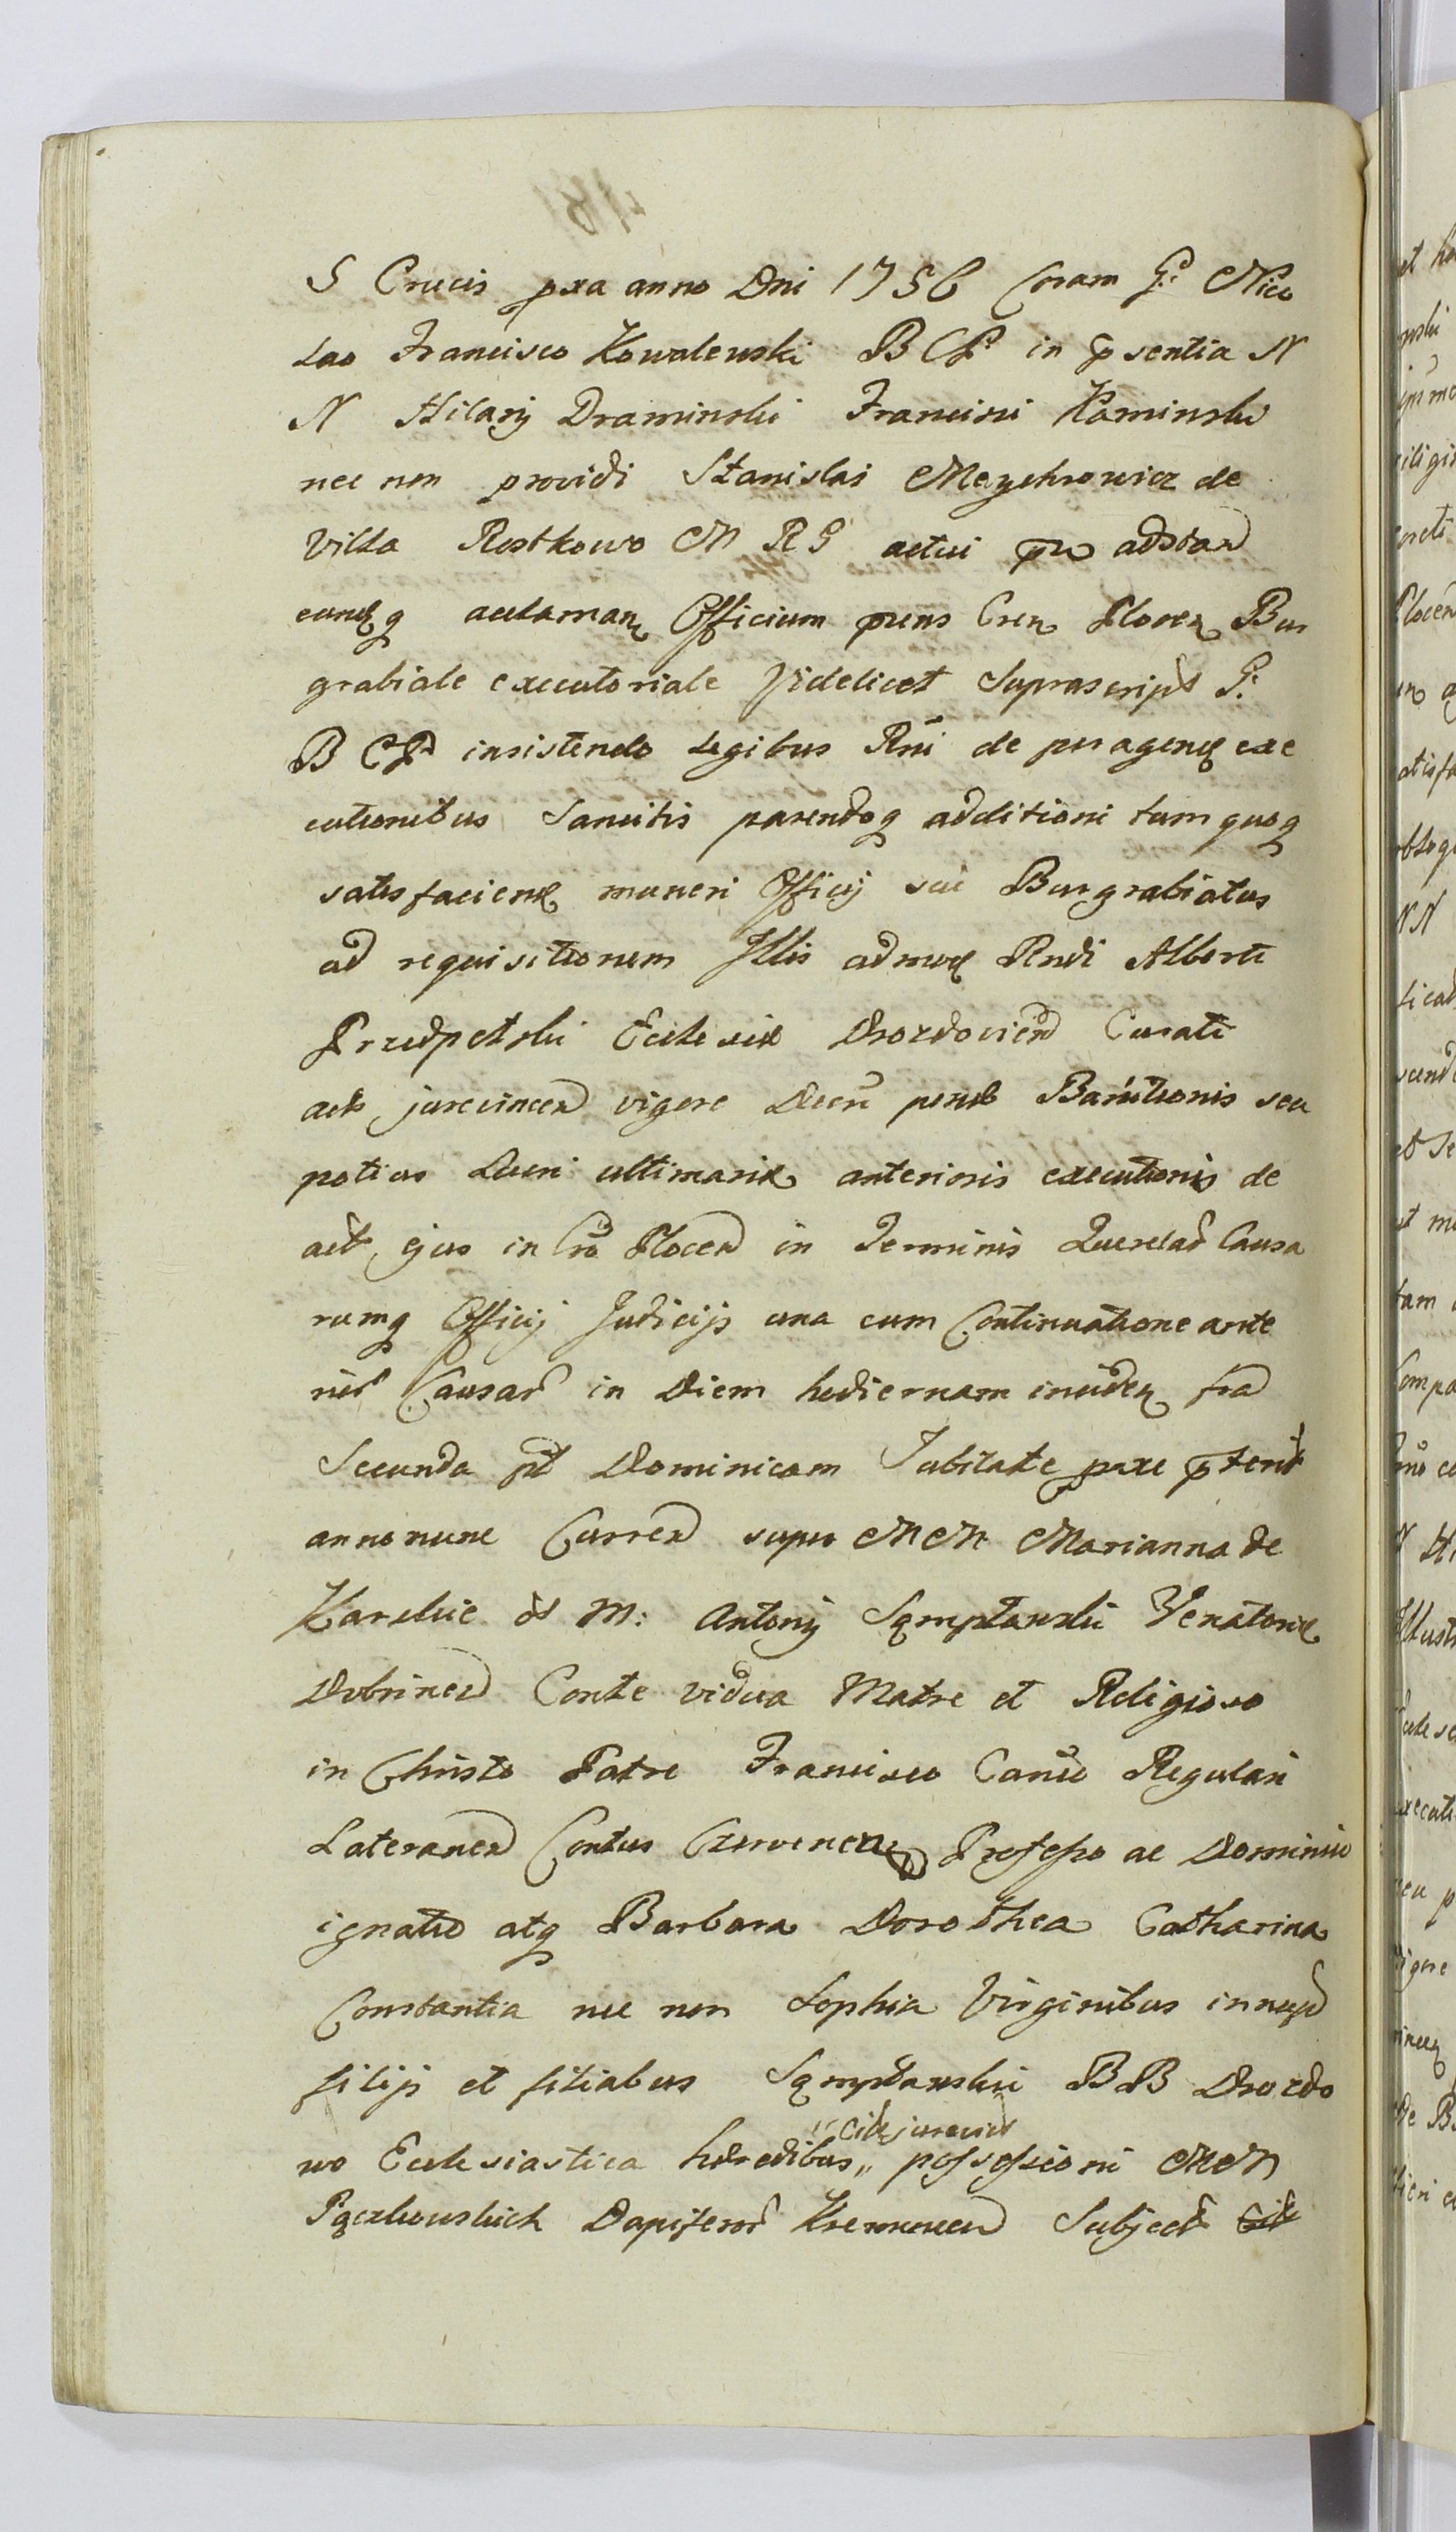 S Crucis pxa anno Dni 1756 Coram G: Nico
lao Francisco Kowalewski B C P in psentia N
N Hilarij Draminski Francisci Kaminski
nec non providi Stanislai Maychrowicz de
Villa Rostkowo M R G actui pn adstan
eundq acclaman Officium prens Cren Plocen Bur
grabiale executoriale Videlicet Suprascript G:
B C P insistendo Legibus Rni de peragend exe
cutionibus Sancitis parendoq additioni tum quoq
satisfaciend muneri Officij sui Burgrabiatus
ad requisitionem Illis admod Rndi Alberti
Przedpelski Ecclesiæ Drozdovien Curati
act jurevincen vigore Decri penæ Banitionis seu
potius Decri ultimariæ anterioris executionis de
act ejus in Cro Plocen in Terminis Querelar Causa
rumq Officij Judicijs una cum Continuatione ante
rior Causar in Diem hodiernam inciden fra
Secunda pt Dominicam Jubilate pxe pterit
anno nunc Curren super M M Marianna de
Karskie ol M: Antonij Sęmpławski Venatoris
Dobrinen Conte vidua Matre et Religioso
in Christo Patre Francisco Canco Regulari
Lateranen Contus Czervenen Professo ac Dominico
ignatio atq Barbara Dorothea Catharina
Constantia nec non Sophia Virginibus innupt
filijs et filiabus Sęmpławskie B B Drozdo
wo Ecclesiastica hæredibus,, possessioni M M
,, Cit jurevict
Pączkowskich Dapiferor Subject Cit